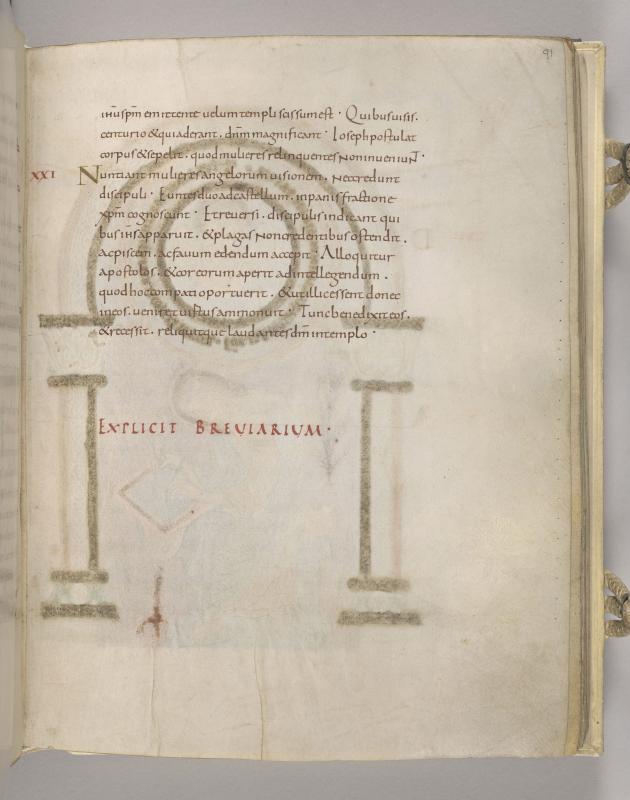 91
ihuspm emittente uelum templi scissum est · Quibus uisis ·
centurio & qui aderant · dnm magnificant · Ioseph postulat
corpus & sepelit · quod mulieres relinquentes non inueniunt ·
XXI Nuntiant mulieres angelorum uisionem · Nec credunt
discipuli · Euntes duo ad castellum · in panis fractione
xpm cognoscunt · Et reuersi · discipulis indicant qui
bus ihs apparuit · & plagas non credentibus ostendit ·
ac piscem · ac fauum edendum accepit · Alloquitur
apostolos · & cor eorum aperit ad intellegendum ·
quod hoc eum pati oportuerit · & ut illic essent donec
in eos · ueniret uirtus ammonuit · Tunc benedixit eos ·
& recessit · reliquitque laudantes dm in templo ·
EXPLICIT BREUIARIUM ·